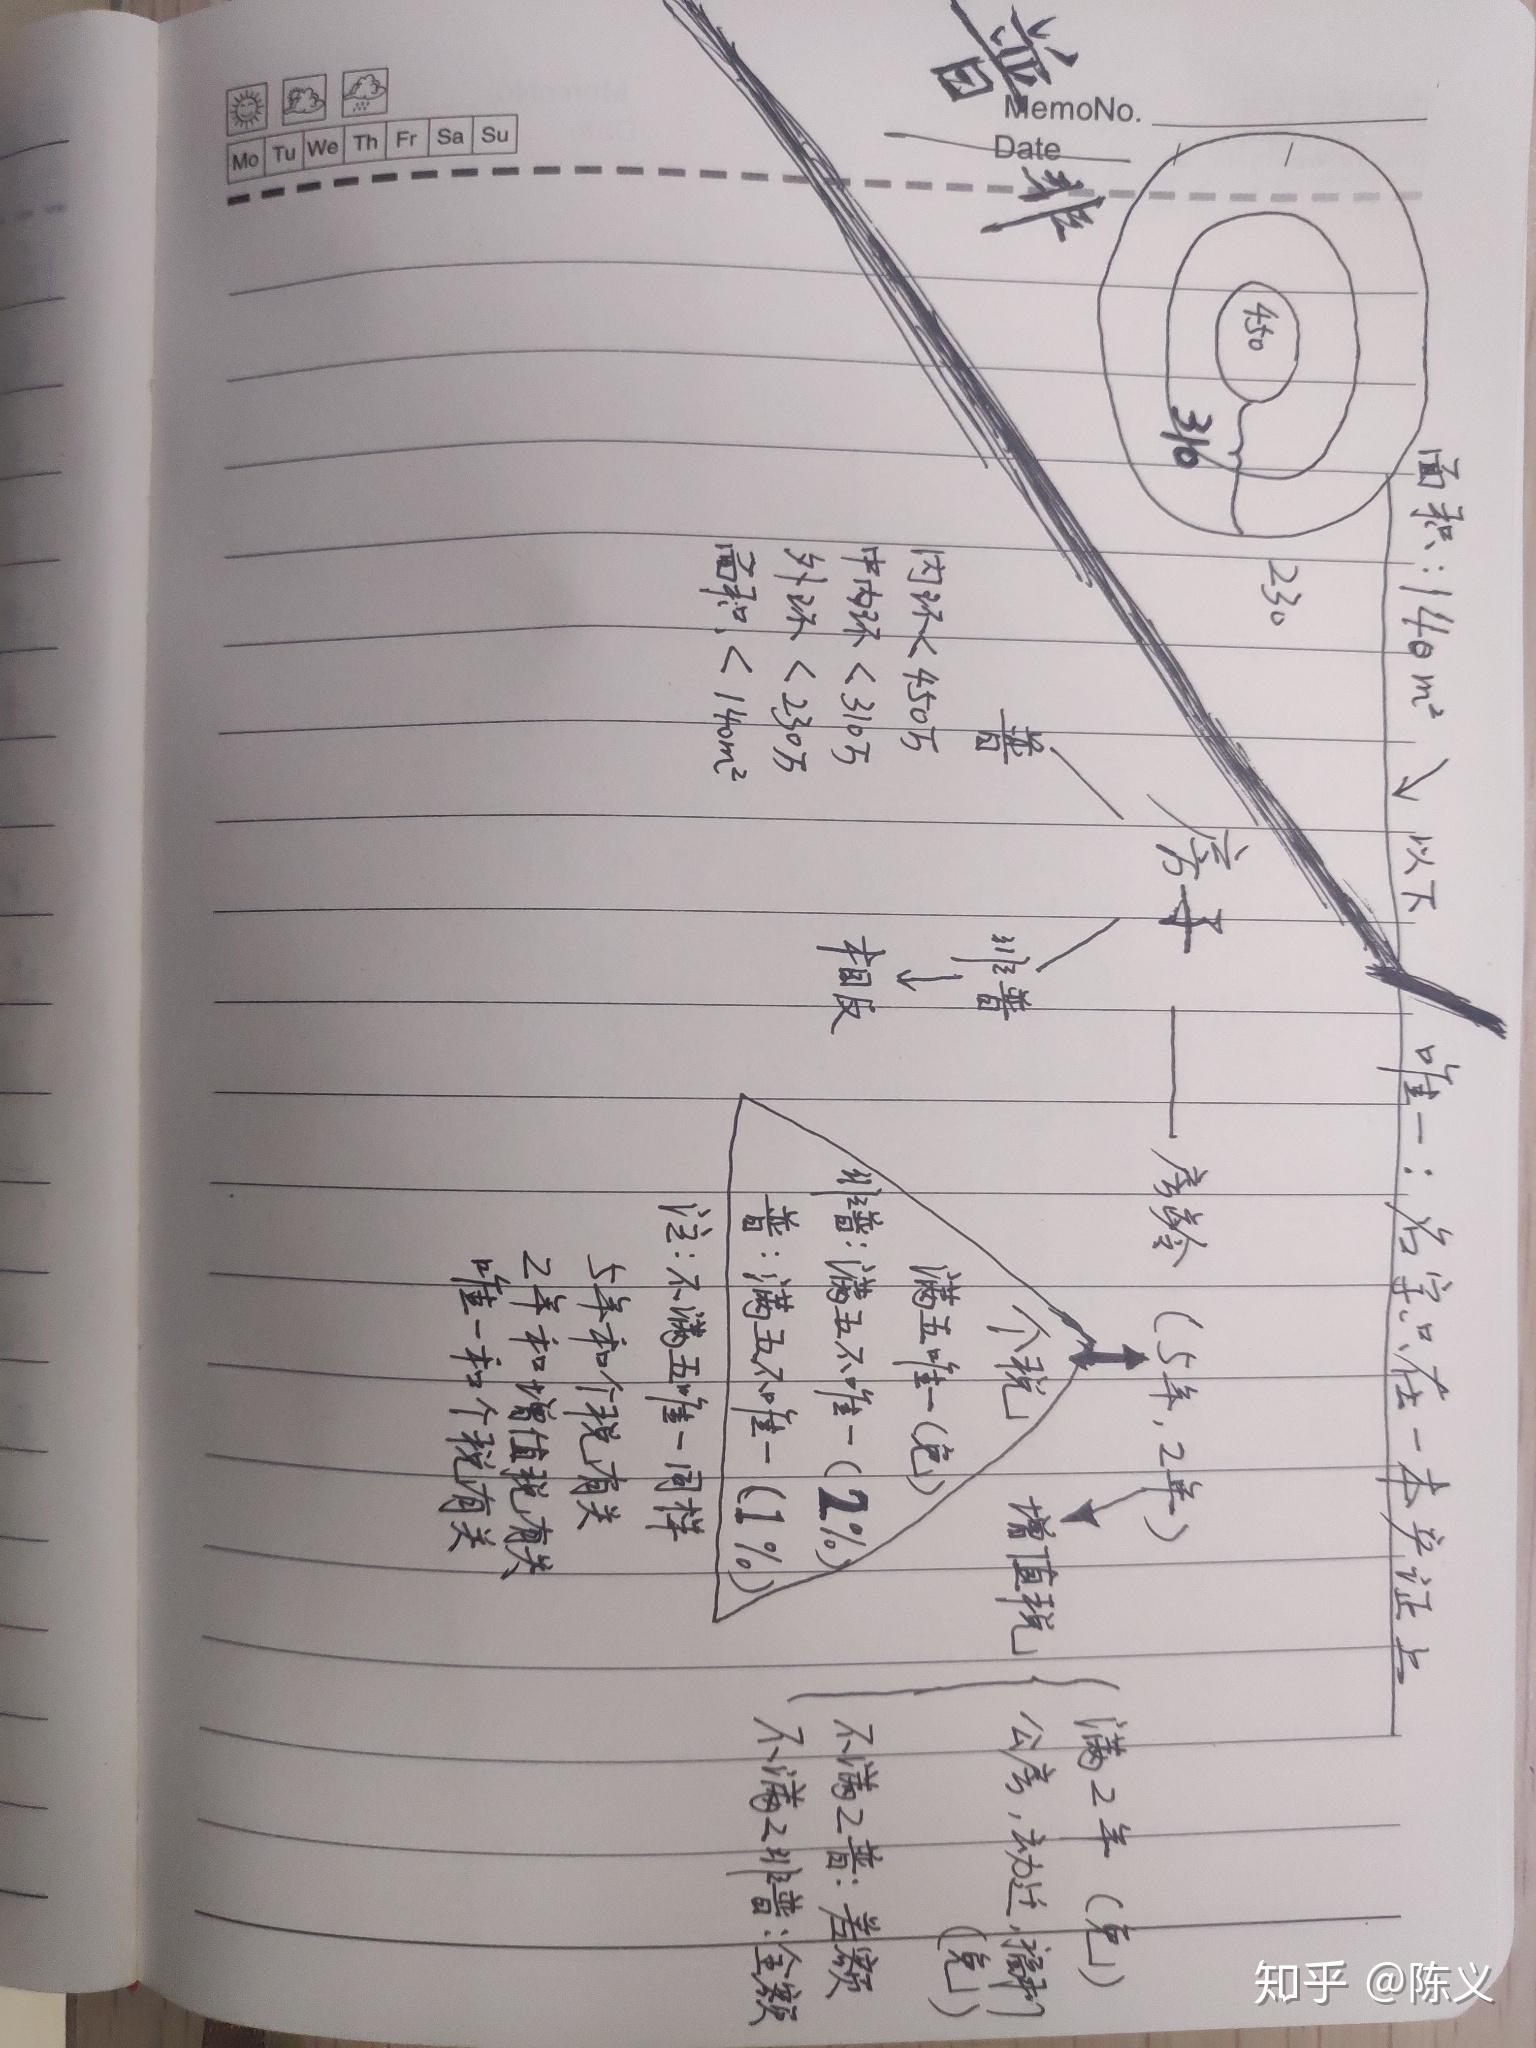 MemoNo.
Date
Mo Tu We Th Fr Sa Su
普
非
450
310
230
面积:140m² → 以下
唯一:名字只在一本产证上
房子 — 房龄 (5年,2年)
普
内环<450万
中内环<310万
外环<230万
面积<140m²
非普
↓
相反
个税
满五唯一(免)
非普:满五不唯一(2%)
普:满五不唯一(1%)
注:不满五唯一同样
5年和个税有关
2年和增值税有关
唯一和个税有关
增值税
满2年 (免)
公房,动迁,
(免)
不满2普:差额
不满2非普:全额
知乎 @陈义